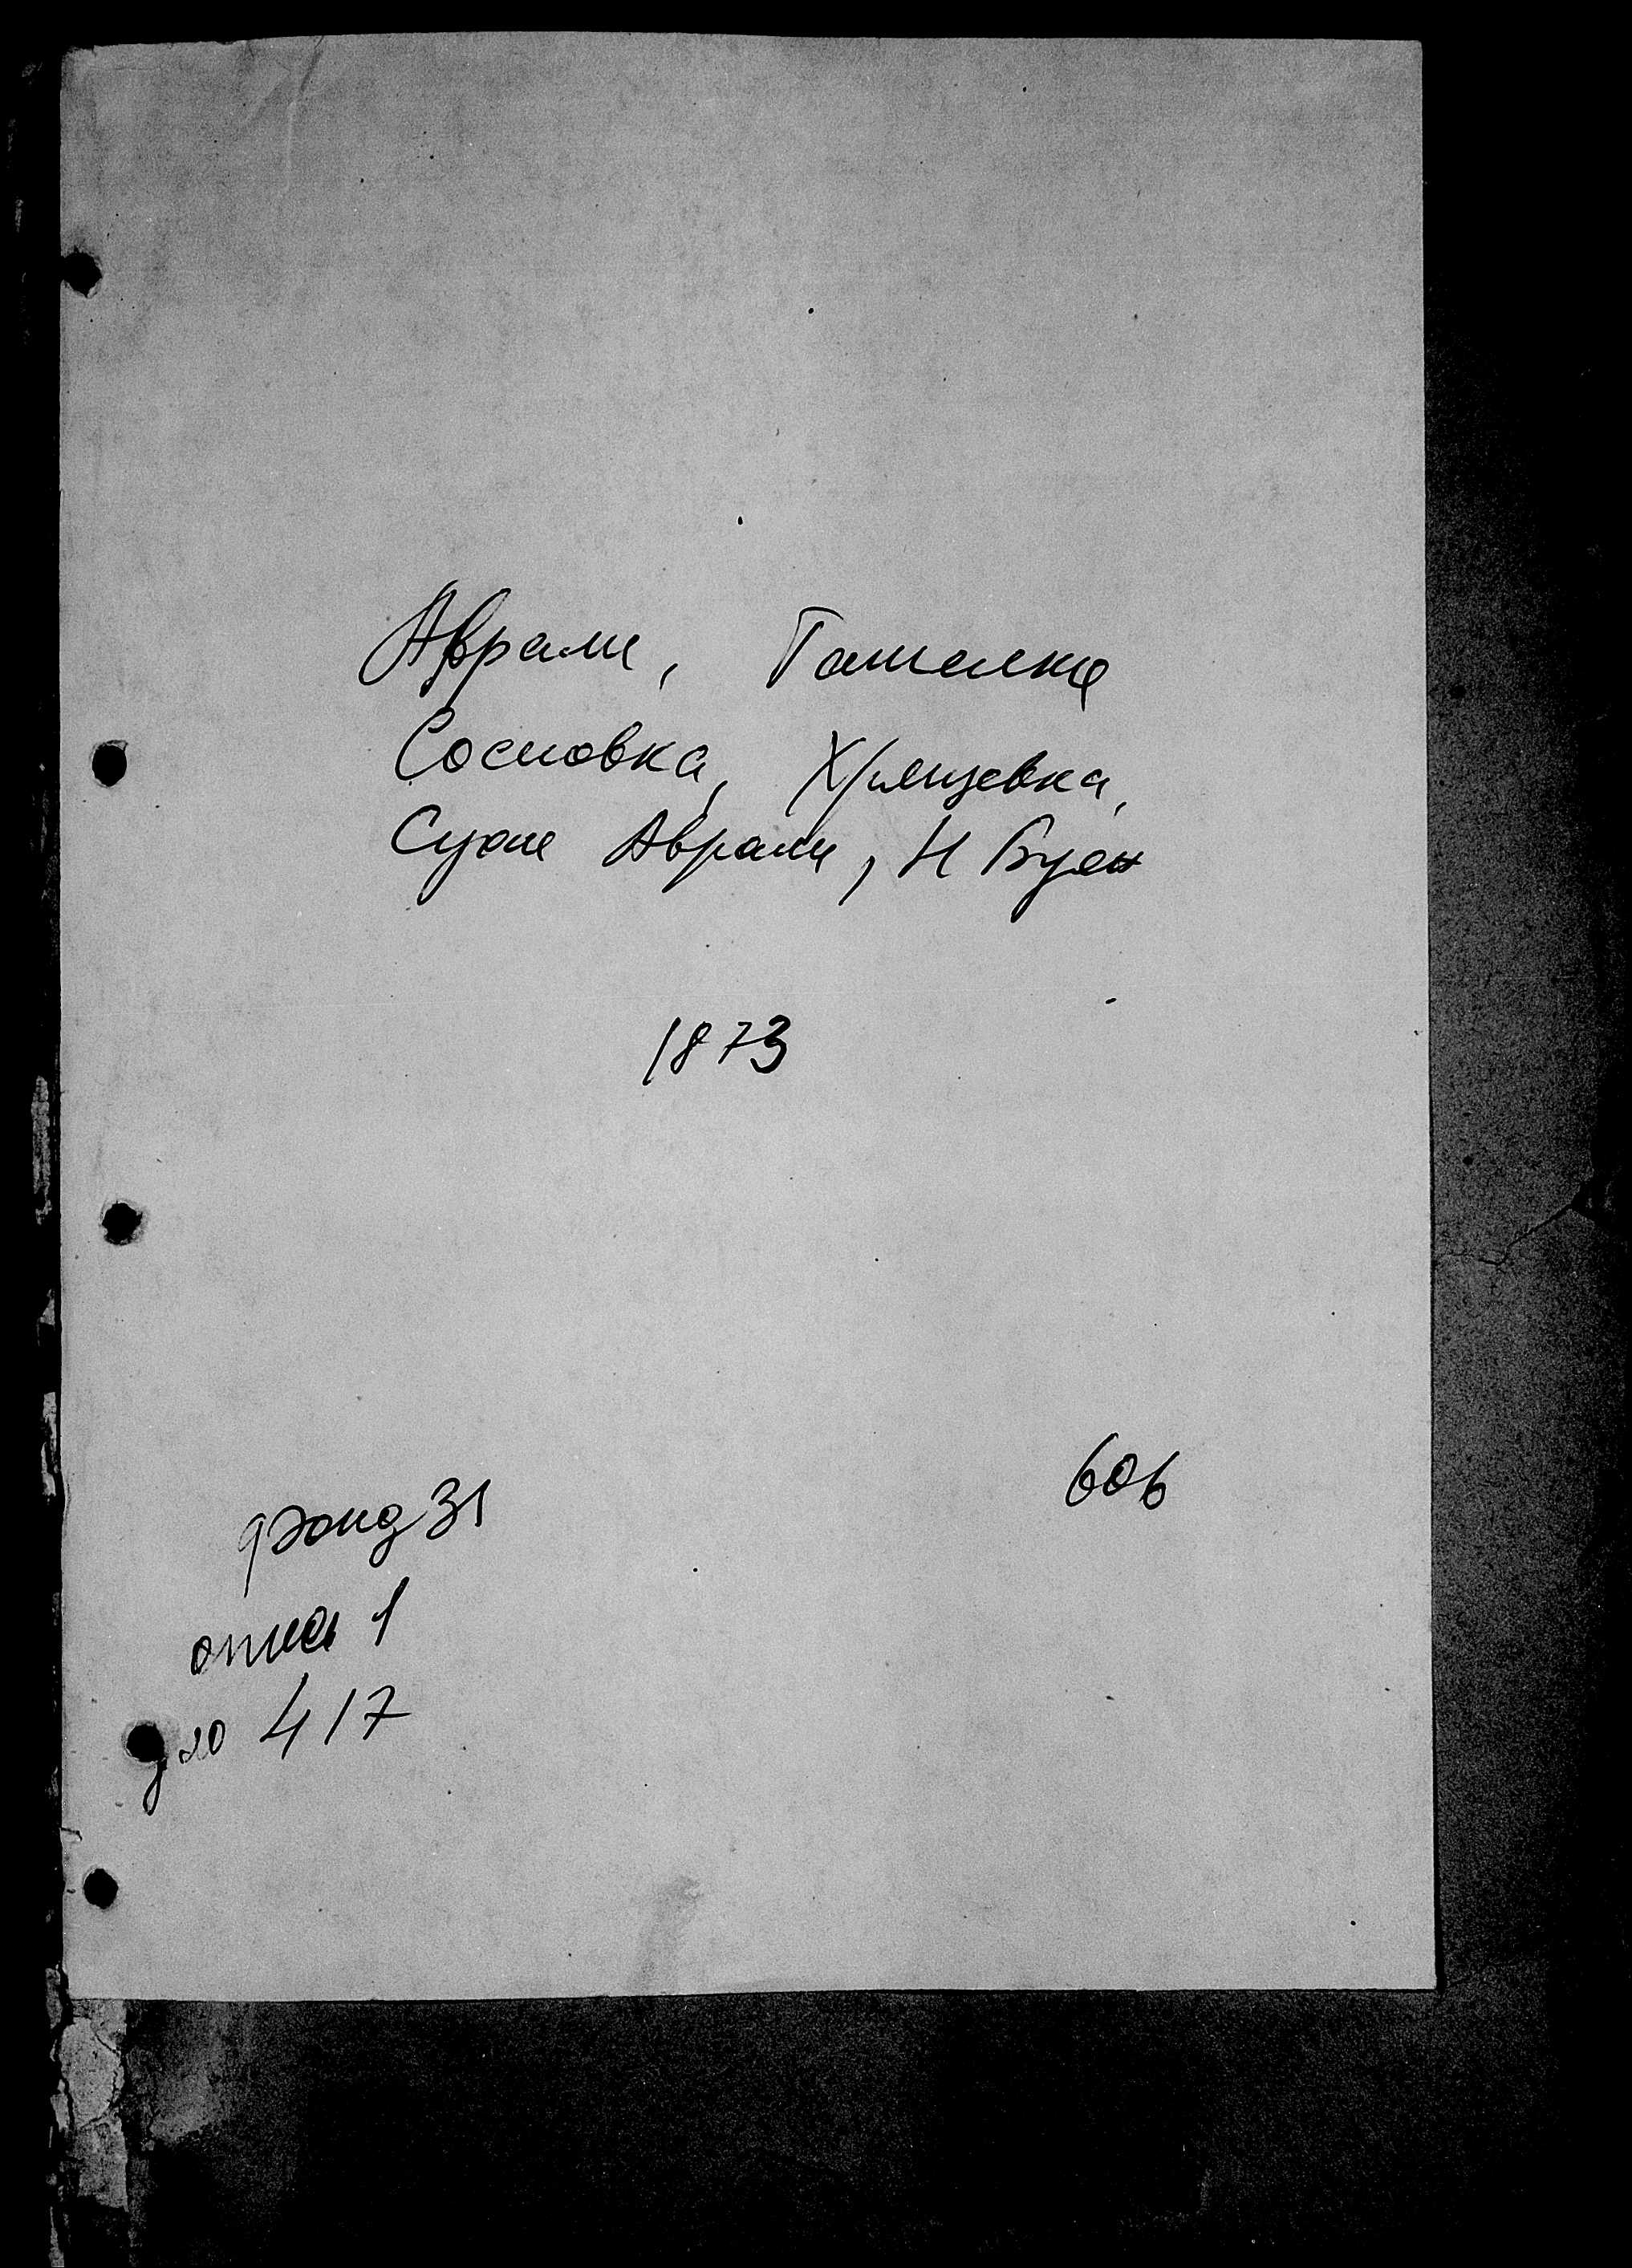 Аврали, Ташелка
Сосновка, Хрящевка,
Сухие Аврали, Н Буян
1873
606
фонд 31
опись 1
дло 417